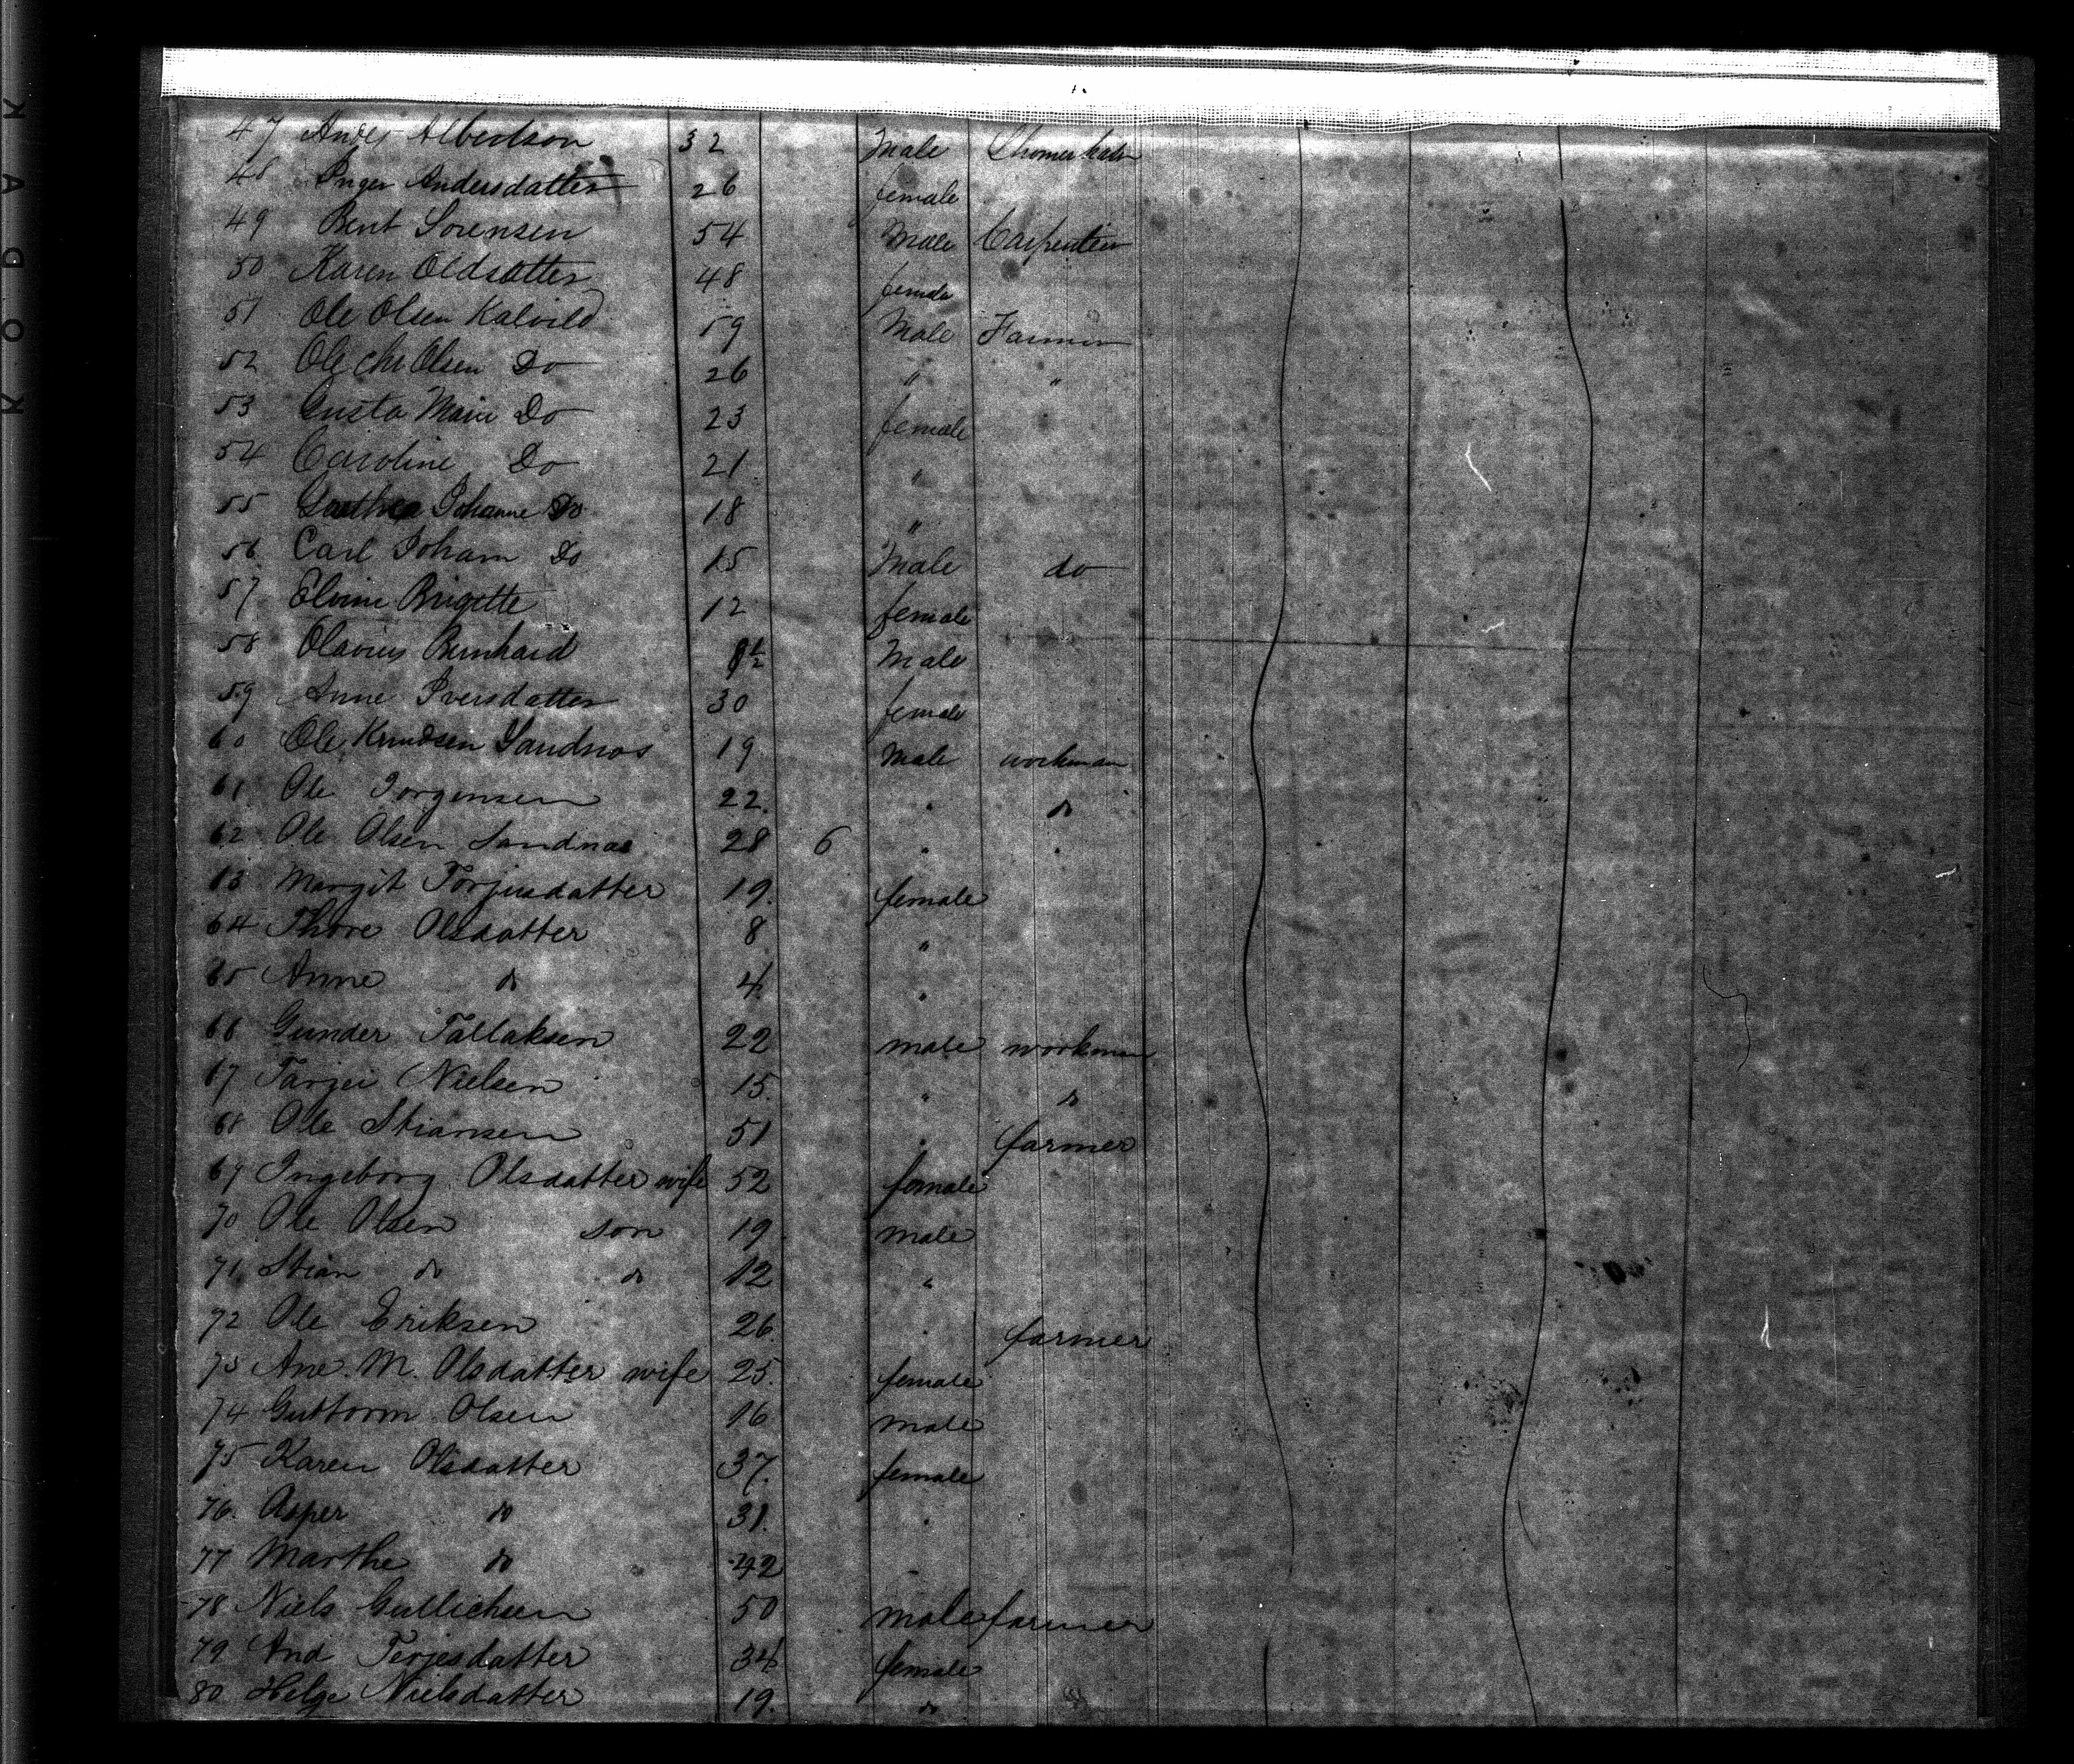 47 Ande Albertson 32 Male
48 Inger Andersdatter 26 female
49 Bent Sorensen 54 Male Carpenter
50 Karen Oldsatter 48 female
51 Ole Olsen Kalvild 59 Male Farmer
52 Ole Chr Olsen Do 26 " "
53 Gusta Marie Do 23 female
54 Caroline Do 21 "
55 Johanne Do 18 "
56 Carl Joham Do 15 Male do
57 Elvine Brigitte 12 female
58 Olavius Bernhard Male
59 Anne Iversdatter 30 female
60 Ole Knudsen Sandnos 19 Male workman
61 Ole Jorgensen 22. " do
62 Ole Olsen Sandnas 28 6 " "
63 Margit Torjusdatter 19. female
64 Thore Olsdatter 8 "
65 Anne do 4. "
66 Gunder Tallaksen 22 male workman
67 Tarjei Nielsen 15. " do
68 Ole Stiansen 51 " farmer
69 Ingeborg Olsdatter wife 52 female
70 Ole Olsen son 19 male
71 Stian do do 12 "
72 Ole Eriksen 26. " farmer
73 Ane M. Olsdatter wife 25. female
74 Guttorm Olsen 16 male
75 Karen Olsdatter 37. female
76. Asper do 31. "
77 Marthe do 42 "
78 Niels Gullichsen 50 male farmer
79 And Terjesdatter 34 female
80 Helge Nielsdatter 19. do
KODAK